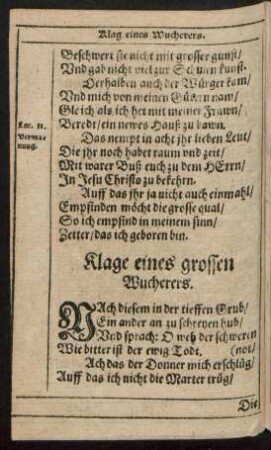 Klag eines Wucherers.
Beschwert sie nicht mit grosser gunst/
Vnd gab nicht viel zur Schulen kunst.
Derhalben auch der Würger kam/
Vnd mich von meinen Gütern nam/
Gleich als ich het mit meiner Frawn/
Beredt/ein newes Hauß zu bawn.
Luc. 12.
Das nempt in acht jhr lieben Leut/
Vermanung.
Die jhr noch habet raum vnd zeit/
Mit warer Buß euch zu dem HErrn/
In Jesu Christo zu bekehrn.
Auff das jhr ja nicht auch einmahl/
Empfinden möcht die grosse qual/
So ich empfind in meinem sinn/
Zetter/das ich geboren bin.
Klage eines grossen
Wucherers.
NAch diesem in der tieffen Grub/
Ein ander an zu schreyen hub/
Vnd sprach: O weh der schweren
Wie bitter ist der ewig Todt. (not/
Ach das der Donner mich erschlüg/
Auff das ich nicht die Marter trüg/
Die